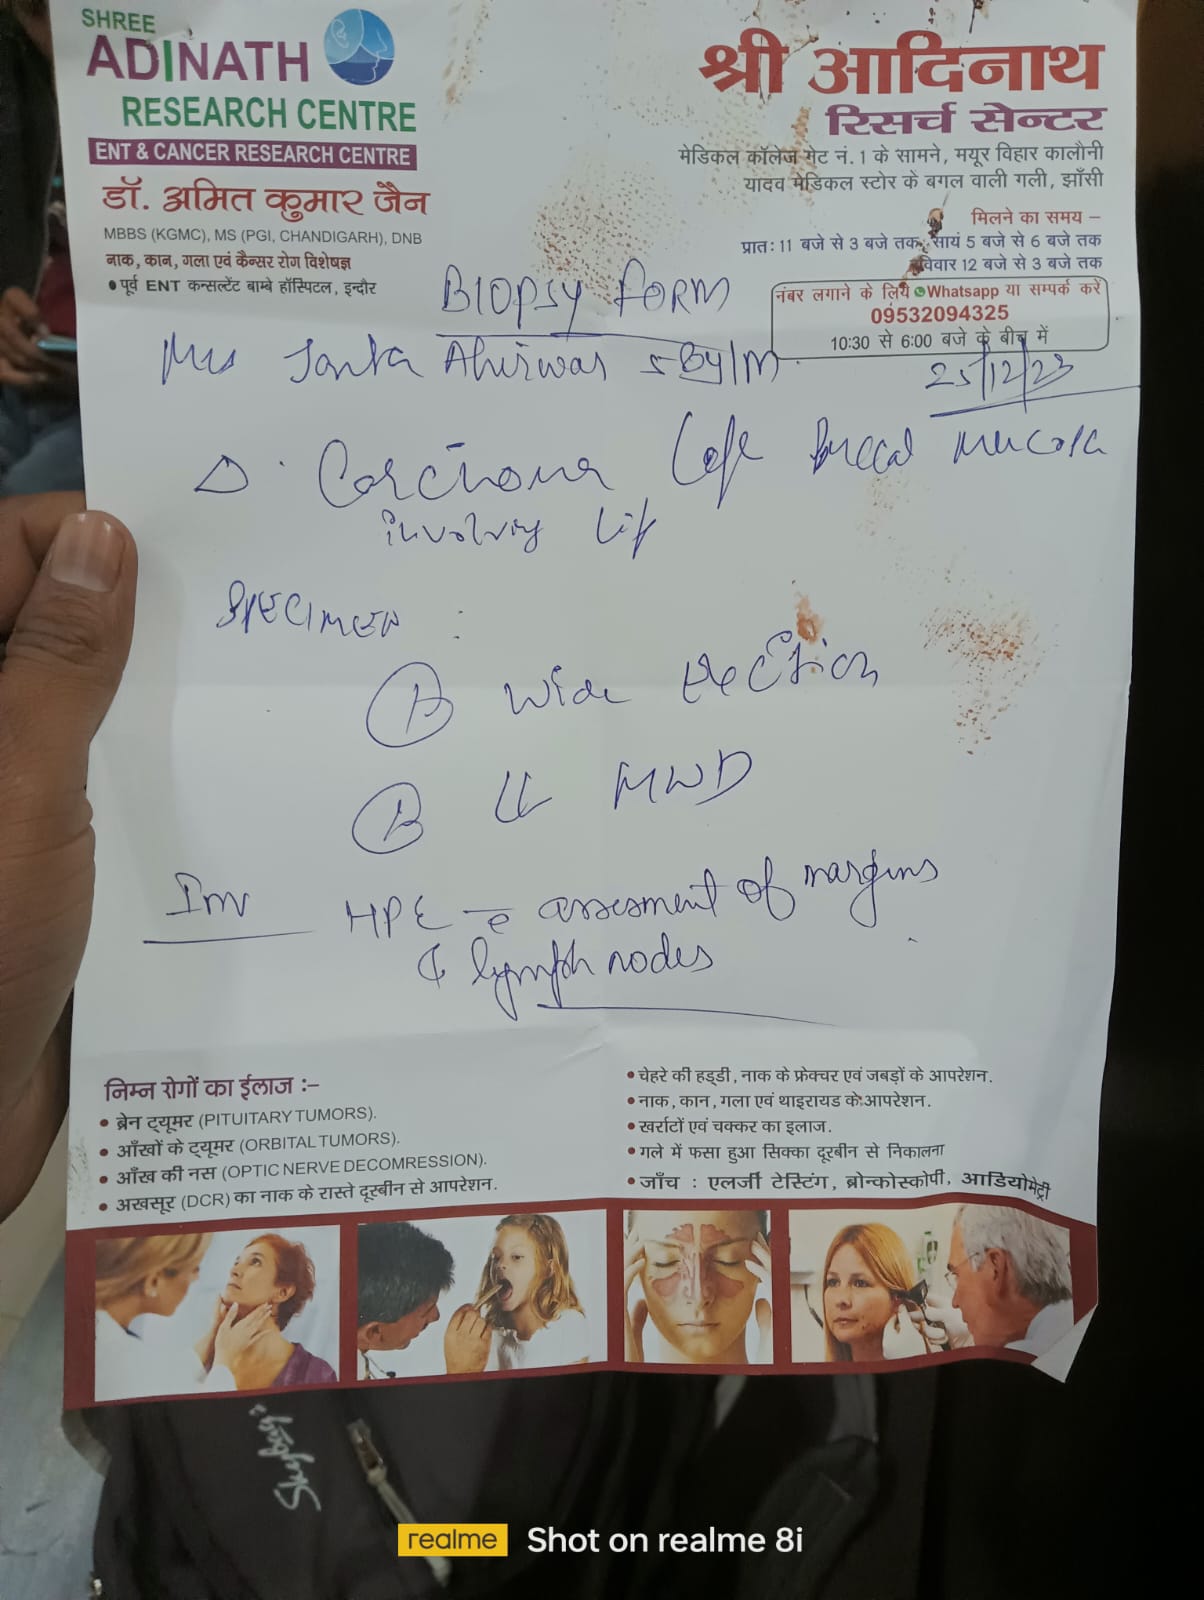 SHREE
ADINATH
RESEARCH CENTRE
ENT & CANCER RESEARCH CENTRE
डॉ. अमित कुमार जैन
MBBS (KGMC), MS (PGI, CHANDIGARH), DNB
नाक, कान, गला एवं कैन्सर रोग विशेषज्ञ
• पूर्व ENT कन्सल्टेंट बाम्बे हॉस्पिटल, इन्दौर
श्री आदिनाथ
रिसर्च सेन्टर
मेडिकल कॉलेज गेट नं. 1 के सामने, मयूर विहार कालौनी
यादव मेडिकल स्टोर के बगल वाली गली, झाँसी
मिलने का समय –
प्रातः 11 बजे से 3 बजे तक, सायं 5 बजे से 6 बजे तक
रविवार 12 बजे से 3 बजे तक
नंबर लगाने के लिये Whatsapp या सम्पर्क करें
09532094325
10:30 से 6:00 बजे के बीच में
BIOPSY FORM
Ahirwar
25/12/23
Carcinoma Left Buccal mucosa
involving lip
SPECIMEN :
Wide
B MND
Inv HPE c assesment of margins
& lymph nodes
निम्न रोगों का ईलाज :–
• ब्रेन ट्यूमर (PITUITARY TUMORS).
• आँखों के ट्यूमर (ORBITAL TUMORS).
• आँख की नस (OPTIC NERVE DECOMRESSION).
• अखसूर (DCR) का नाक के रास्ते दूरबीन से आपरेशन.
• चेहरे की हड्डी, नाक के फ्रेक्चर एवं जबड़ों के आपरेशन.
• नाक, कान, गला एवं थाइरायड के आपरेशन.
• खर्राटों एवं चक्कर का इलाज.
• गले में फसा हुआ सिक्का दूरबीन से निकालना
• जाँच : एलर्जी टेस्टिंग, ब्रोन्कोस्कोपी, आडियोमेट्री
realme Shot on realme 8i